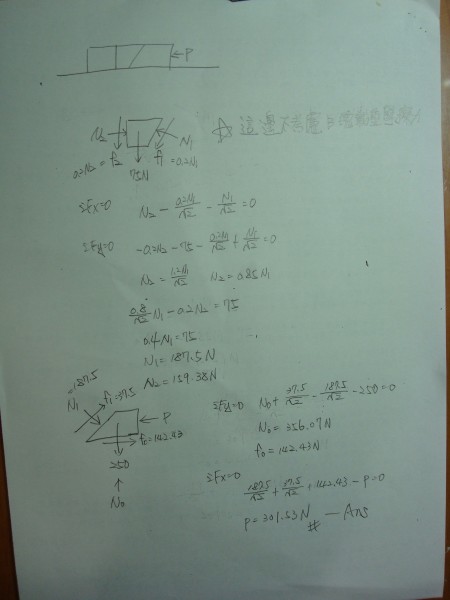 ←P
N₂
N₁
0.2N₂ = f₂
75N
f₁ = 0.2N₁
☆ 這邊不考慮
ΣFx=0 N₂ - 0.2N₁/√2 - N₁/√2 = 0
ΣFy=0 -0.2N₂ - 75 - 0.2N₁/√2 + N₁/√2 = 0
N₂ = 1.2N₁/√2 N₂ = 0.85N₁
0.8/√2 N₁ - 0.2N₂ = 75
0.4N₁ = 75
N₁ = 187.5N
N₂ = 159.38N
=187.5
N₁
f₁=37.5
← P
f₀=142.43
250
↑
N₀
ΣFy=0 N₀ + 37.5/√2 - 187.5/√2 - 250 = 0
N₀ = 356.07N
f₀ = 142.43N
ΣFx=0
187.5/√2 + 37.5/√2 + 142.43 - P = 0
P = 301.53N # — Ans